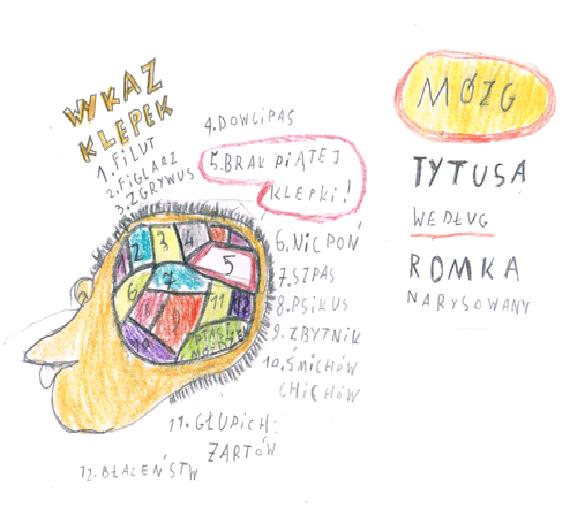 WYKAZ
KLEPEK
1. FILUT
2. FIGLARZ
3. ZGRYWUS
4. DOWCIPAS
5. BRAK PIĄTEJ
KLEPKI!
6. NICPOŃ
7. SZPAS
8. PSIKUS
9. ZBYTNIK
10. ŚMICHÓW
CHICHÓW
11. GŁUPICH
ŻARTÓW
12. BŁAZEŃSTW
2 3 4
5
6 7
8 9 11 12
10
PTASI
MÓŻDŻEK
MÓZG
TYTUSA
WEDŁUG
ROMKA
NARYSOWANY